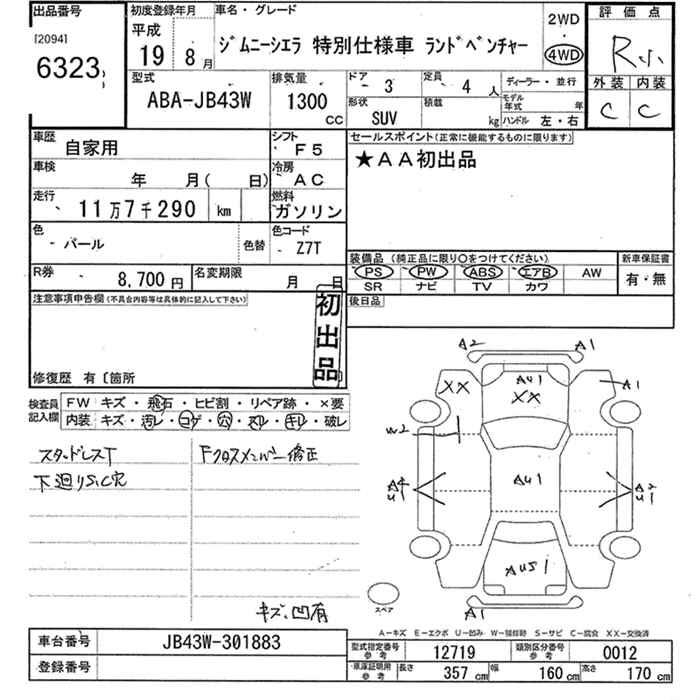 出品番号 初度登録年月 車名・グレード 評価点
[2094] 平成 2WD
6323 19 8月 ジムニーシエラ 特別仕様車 ランドベンチャー 4WD R小
型式 排気量 ドア 3 定員 4人 ディーラー・並行 外装 内装
ABA-JB43W 1300cc 形状 SUV 積載 kg モデル年式 年 ハンドル 左・右 C C
車歴 自家用 シフト F5 セールスポイント(正常に機能するものに限ります)
車検 年 月( 日) 冷房 AC ★AA初出品
走行 11万7千290 km 燃料 ガソリン
色 パール 色替 色コード Z7T 装備品(純正品に限り○をつけてください) 新車保証書
PS PW ABS エアB AW 有・無
R券 8,700円 名変期限 月 日 SR ナビ TV カワ
注意事項申告欄(不具合内容等は具体的に記入して下さい) 後日品
初出品
修復歴 有〔箇所
検査員記入欄 FW キズ・飛石・ヒビ割・リペア跡・×要
内装 キズ・汚レ・コゲ・穴・スレ・キレ・破レ
スタッドレスT Fクロスメンバー修正
下廻りS、C穴
キズ、凹有
A2 A1
XX AU1 XX A1
W2
A4 U1 AU1 A2 U1
AU51
スペア A1
A-キズ E-エクボ U-凹み W-補修跡 S-サビ C-腐食 XX-交換済
車台番号 JB43W-301883 型式指定番号 参考 12719 類別区分番号 参考 0012
登録番号 車庫証明用 参考 長さ 357cm 幅 160cm 高さ 170cm